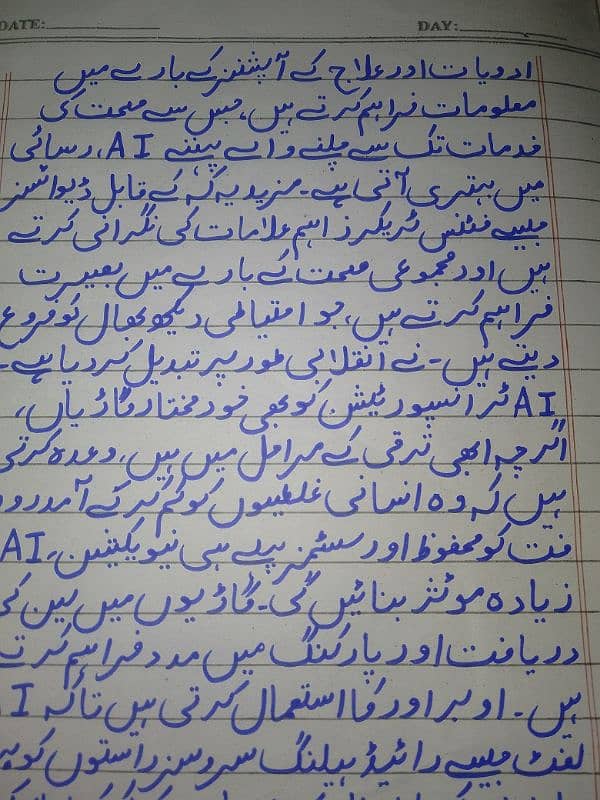 DATE: DAY:
ادویات اور علاج کے آپشنز کے بارے میں
معلومات فراہم کرتے ہیں، جس سے صحت کی
خدمات تک سے چلنے والے پہننے AI، رسائی
میں بہتری آتی ہے۔ مزید یہ کہ کے قابل ڈیوائسز
جیسے فٹنس ٹریکرز اہم علامات کی نگرانی کرتے
ہیں اور مجموعی صحت کے بارے میں بصیرت
فراہم کرتے ہیں، جو احتیاطی دیکھ بھال کو فروغ
دیتے ہیں۔ نے انقلابی طور پر تبدیل کر دیا ہے۔
AI ٹرانسپورٹیشن کو بھی خود مختار گاڑیاں،
اگرچہ ابھی ترقی کے مراحل میں ہیں، وعدہ کرتی
ہیں کہ وہ انسانی غلطیوں کو کم کر کے آمدرو
فت کو محفوظ اور سسٹمز پہلے ہی نیویگیشن، AI
زیادہ موثر بنائیں گی۔ گاڑیوں میں لین کی
دریافت اور پارکنگ میں مدد فراہم کرتے
ہیں۔ اوبر اور کا استعمال کرتی ہیں تاکہ AI
لفٹ جیسے رائیڈ ہیلنگ سروسز راستوں کو